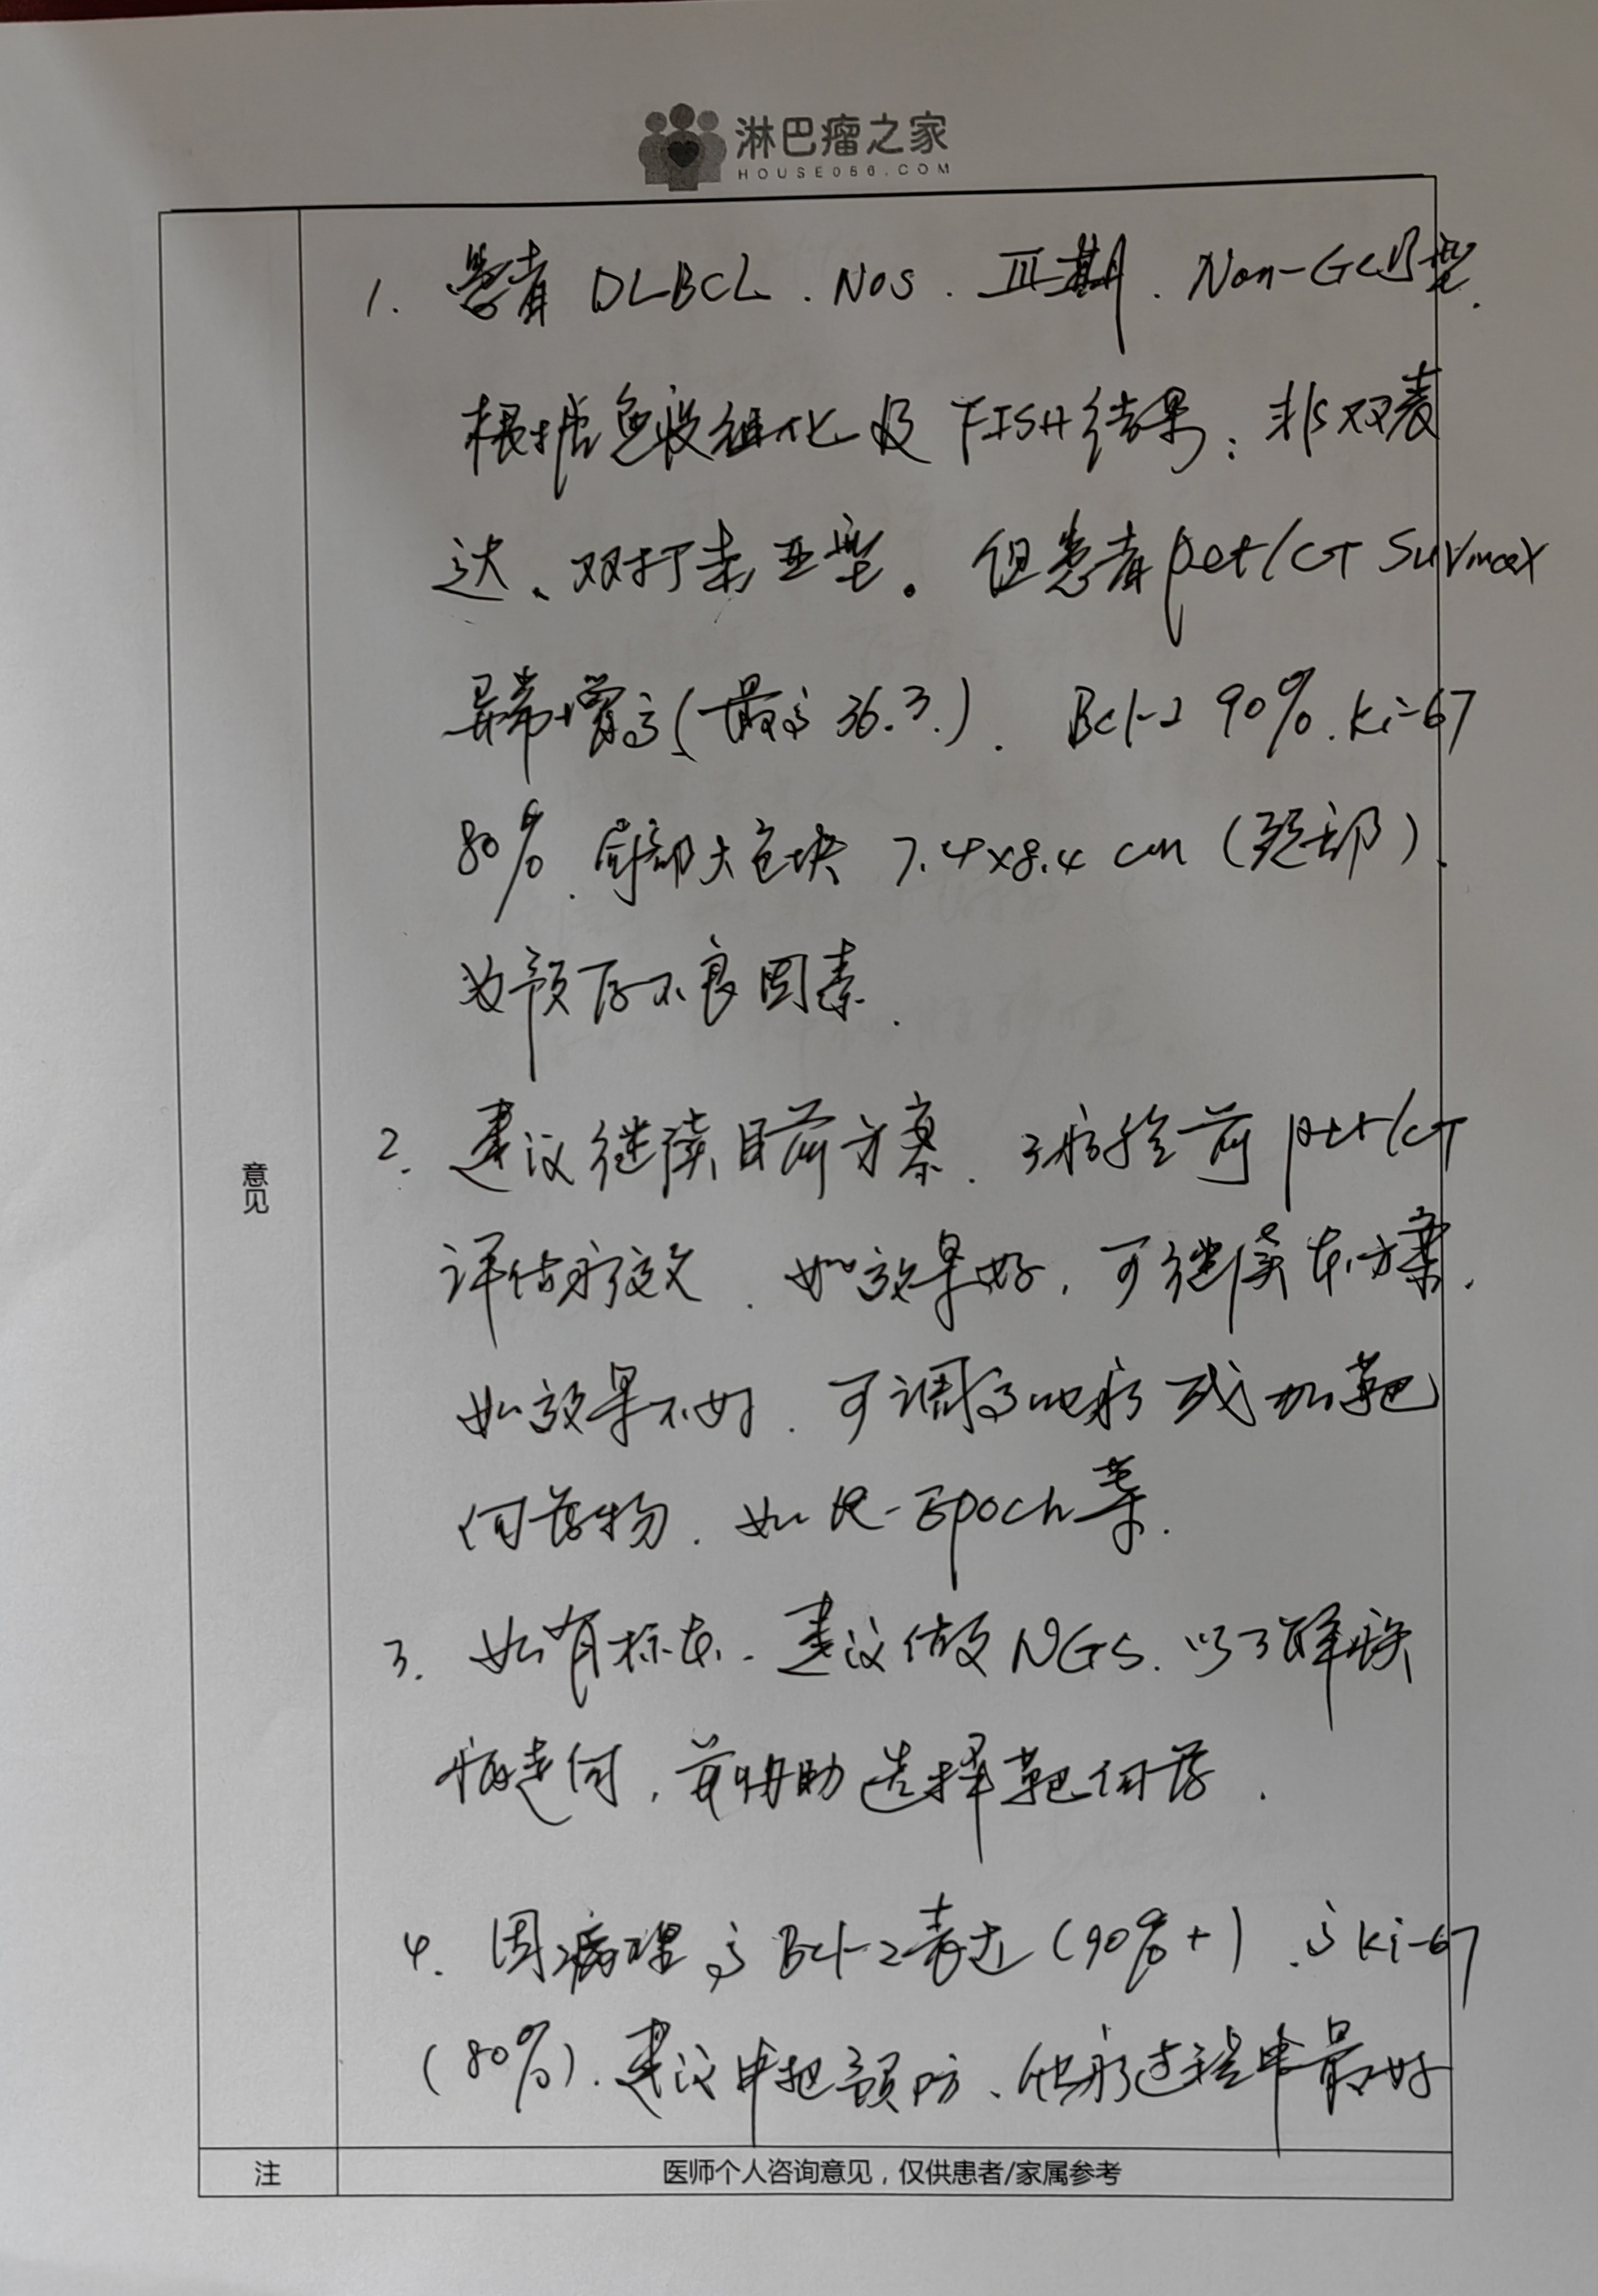 淋巴瘤之家
HOUSE086.COM
1. 患者 DLBCL. NOS. III期. Non-GCB型.
根据免疫组化及 FISH结果: 非双表
达、双打击亚型。但患者 pet/CT SUVmax
异常增高(最高 36.3.). Bcl-2 90%. Ki-67
80%. 局部大包块 7.4×8.4 cm (颈部).
为预后不良因素.
意见
2. 建议继续目前方案. 3疗程前 pet/CT
评估疗效. 如效果好, 可继续本方案.
如效果不好. 可调高化疗或加靶
向药物. 如 R-Epoch等.
3. 如有标本. 建议做 NGS. 以了解疾
病走向, 并帮助选择靶向药.
4. 因病理高 Bcl-2表达 (90%+). 高 Ki-67
(80%). 建议中枢预防. 化疗过程中最好
注
医师个人咨询意见，仅供患者/家属参考